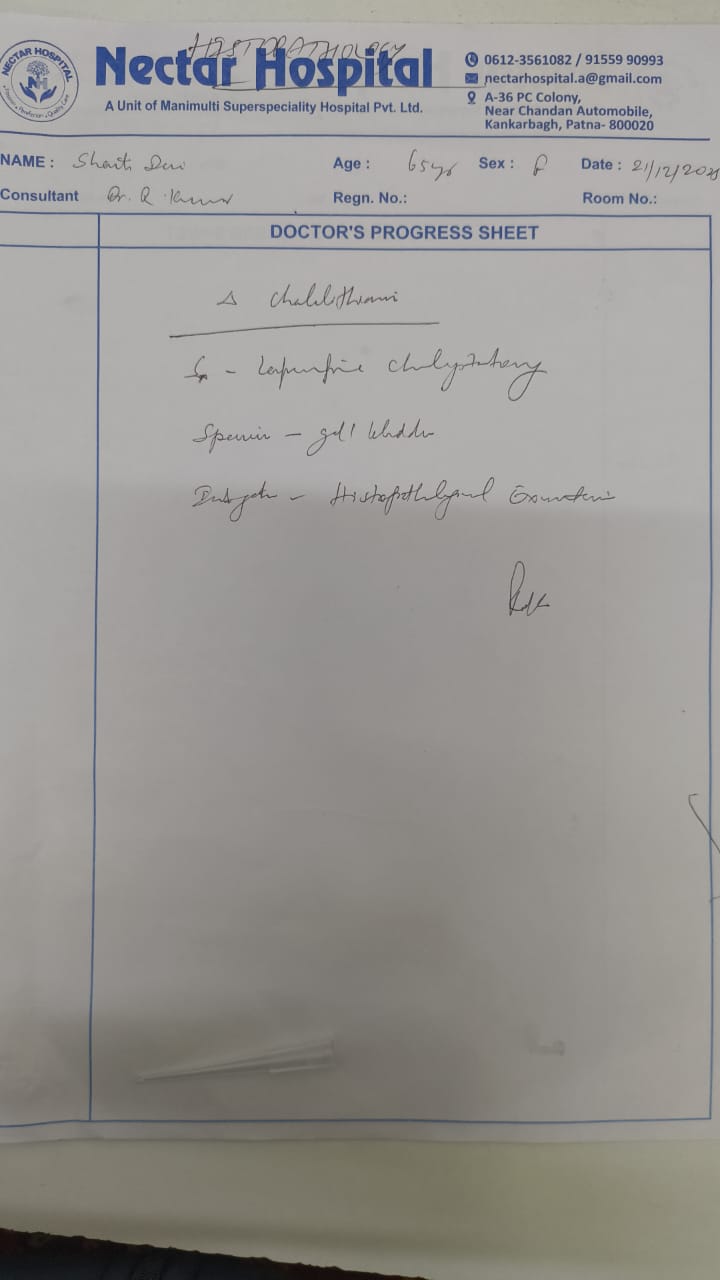 HISTOPATHOLOGY
Nectar Hospital
A Unit of Manimulti Superspeciality Hospital Pvt. Ltd.
NECTAR HOSPITAL
0612-3561082 / 91559 90993
nectarhospital.a@gmail.com
A-36 PC Colony,
Near Chandan Automobile,
Kankarbagh, Patna- 800020
NAME : Shanti Devi Age : 65yr Sex : F Date : 21/12/2025
Consultant Dr. R. Kumar Regn. No.: Room No.:
DOCTOR'S PROGRESS SHEET
Δ Cholelithiasis
Sx - Laparoscopic Cholecystectomy
Specimen - gall bladder
Histopathological Examination